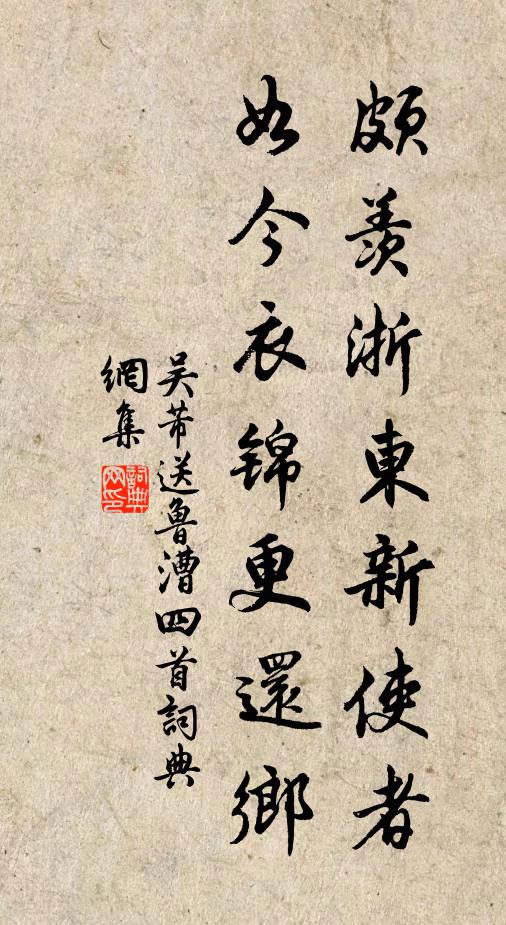 頗羨浙東新使者
如今衣錦更還鄉
吴芾送魯漕四首詞典
網集
詞典網印